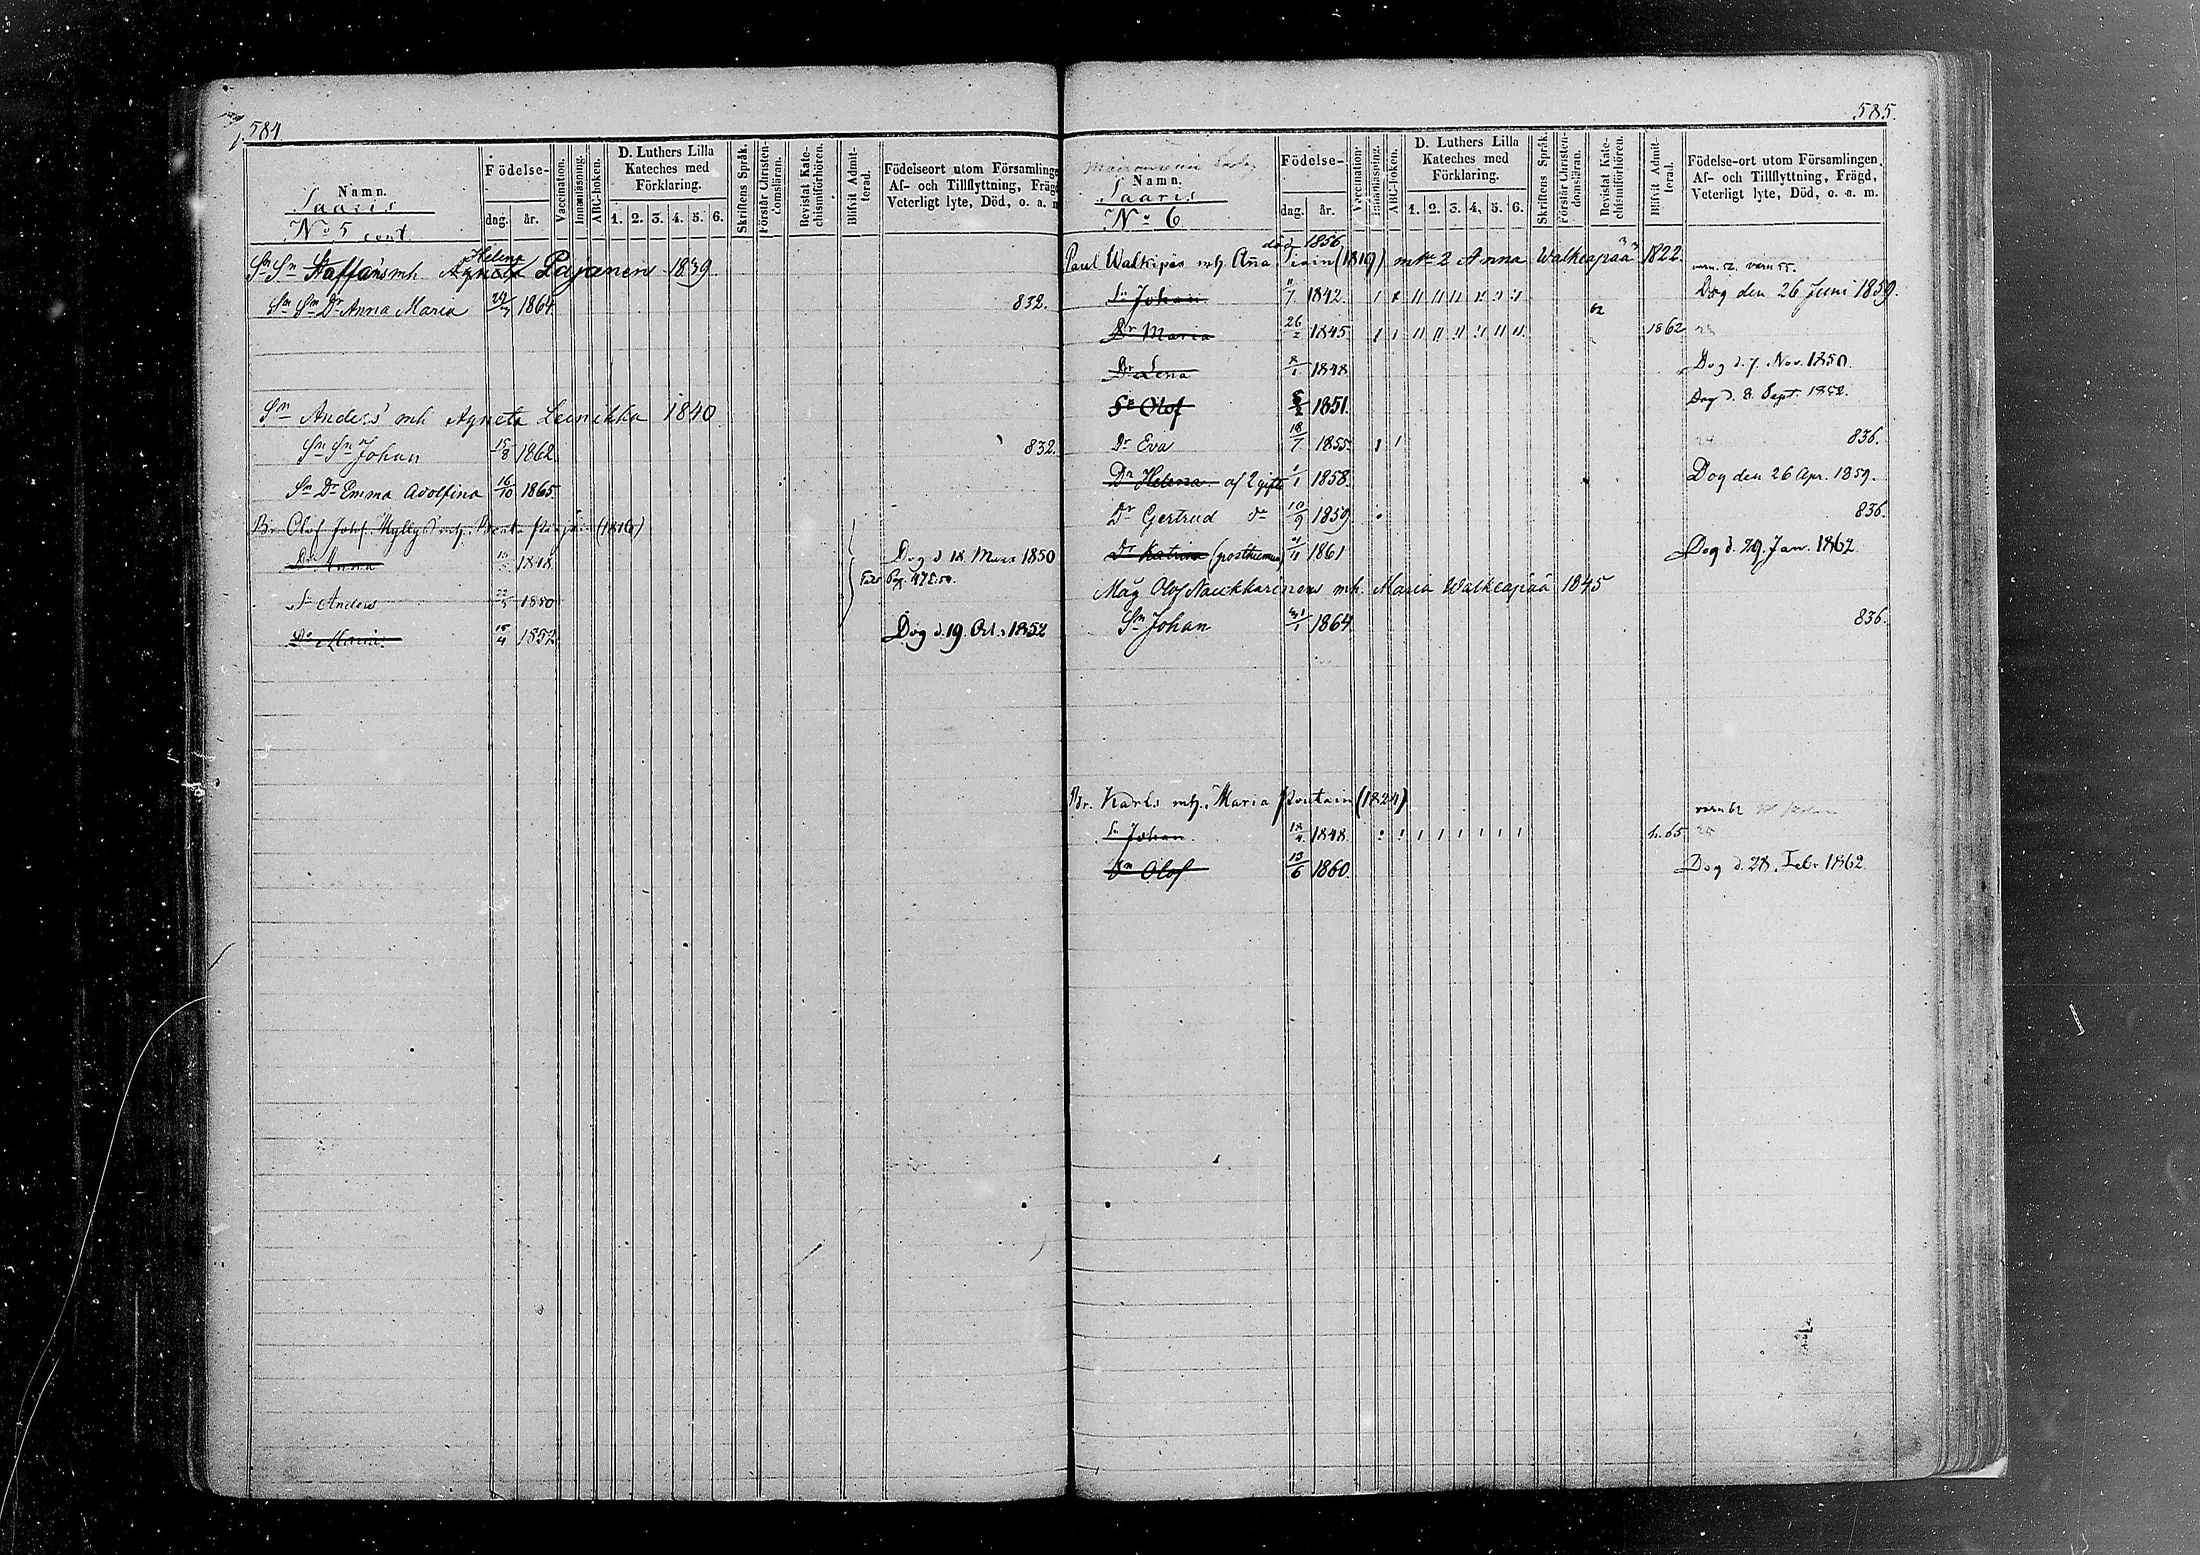 584
Namn.
Saaris
No 5 cont.
Födelse-
dag. år.
Vaccination.
Innanläsning.
ABC-boken.
D. Luthers Lilla
Kateches med
Förklaring.
1. 2. 3. 4. 5. 6.
Skriftens Språk.
Förstår Christen-
domsläran.
Bevistat Kate-
chismiförhören.
Blifvit Admit-
terad.
Födelseort utom Församlinge
Af- och Tillflyttning, Fräg
Veterligt lyte, Död, o. a. m
Helena
Sn Sn Staffans mh Agneta Pajanen 1839
Sn Sns Dr Anna Maria 1864 832.
Sn Anders' mh Agneta Leinikka 1840
Sn Sn Johan 15/8 1862 832.
Sn Dr Emma Adolfina 16/10 1865
Br. Olof Joh. mh. (1816)
Dr Anna 1848 Dog d 18 Mars 1850
Sn Anders 1850
Dr Maria 15/4 1852 Dog d. 19. Oct. 1852
585.
Namn.
Saaris
No 6
Födelse-
dag. år.
Vaccination.
Innanläsning.
ABC-boken.
D. Luthers Lilla
Kateches med
Förklaring.
1. 2. 3. 4. 5. 6.
Skriftens Språk.
Förstår Christen-
domsläran.
Bevistat Kate-
chismiförhören.
Blifvit Admit-
terad.
Födelse-ort utom Församlingen,
Af- och Tillflyttning, Frägd,
Veterligt lyte, Död, o. a. m.
död 1856
Paul Walkipää mh. Aña (1819) 2 Anna Walkeapää 1822.
Sn Johan 1842. Dog den 26 Juni 1859.
Dr Maria 26/2 1845. 62 1862
Dr Lena 8/1 1848 Dog d. 7. Nov. 1850.
Sn Olof 1851. Dog d. 8. Sept. 1852.
Dr Eva 18/7 1855. 836.
Dr Helena af 2 gifte 1/1 1858. Dog den 26 Apr. 1859.
Dr Gertrud do 10/9 1859 836.
Dr Katrina (posthuma) 1861 Dog d. 29. Jan. 1862
Måg Olof Naukkarinens mh. Maria Walkeapää 1845
Sn Johan 1864 836.
Br. Karls mh. Maria Poutain (1824)
Sn Johan 1848. h. 65
Sn Olof 13/6 1860. Dog d. 28. Febr. 1862